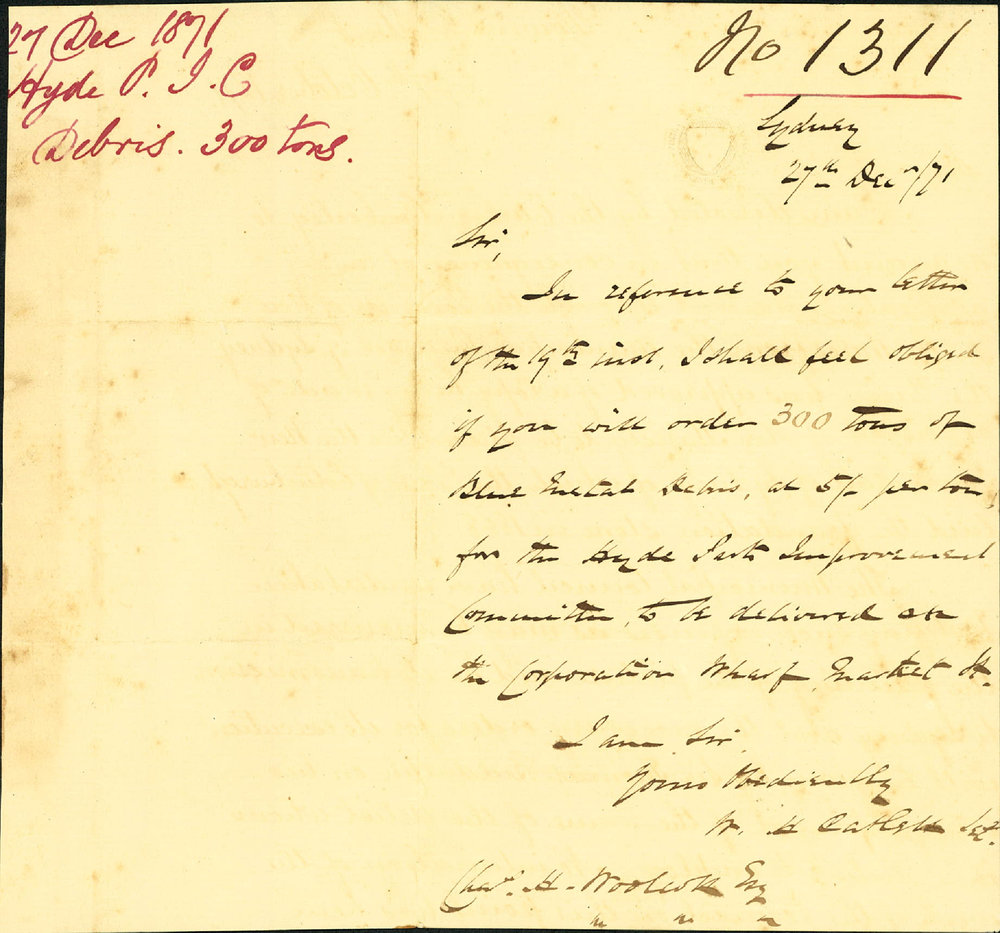 27 Dec 1871
Hyde P. I. C
Debris. 300 tons.
No 1311
Sydney
27th Decr/71
Sir,
In reference to your letter
of the 19th inst, I shall feel obliged
if you will order 300 tons of
Blue Metal Debris, at 5/- per ton,
for the Hyde Park Improvement
Committee, to be delivered on
the Corporation Wharf Market St.
I am Sir,
Yours Obediently
W. H Catlett Sec.
Chas. H. Woolcott Esq